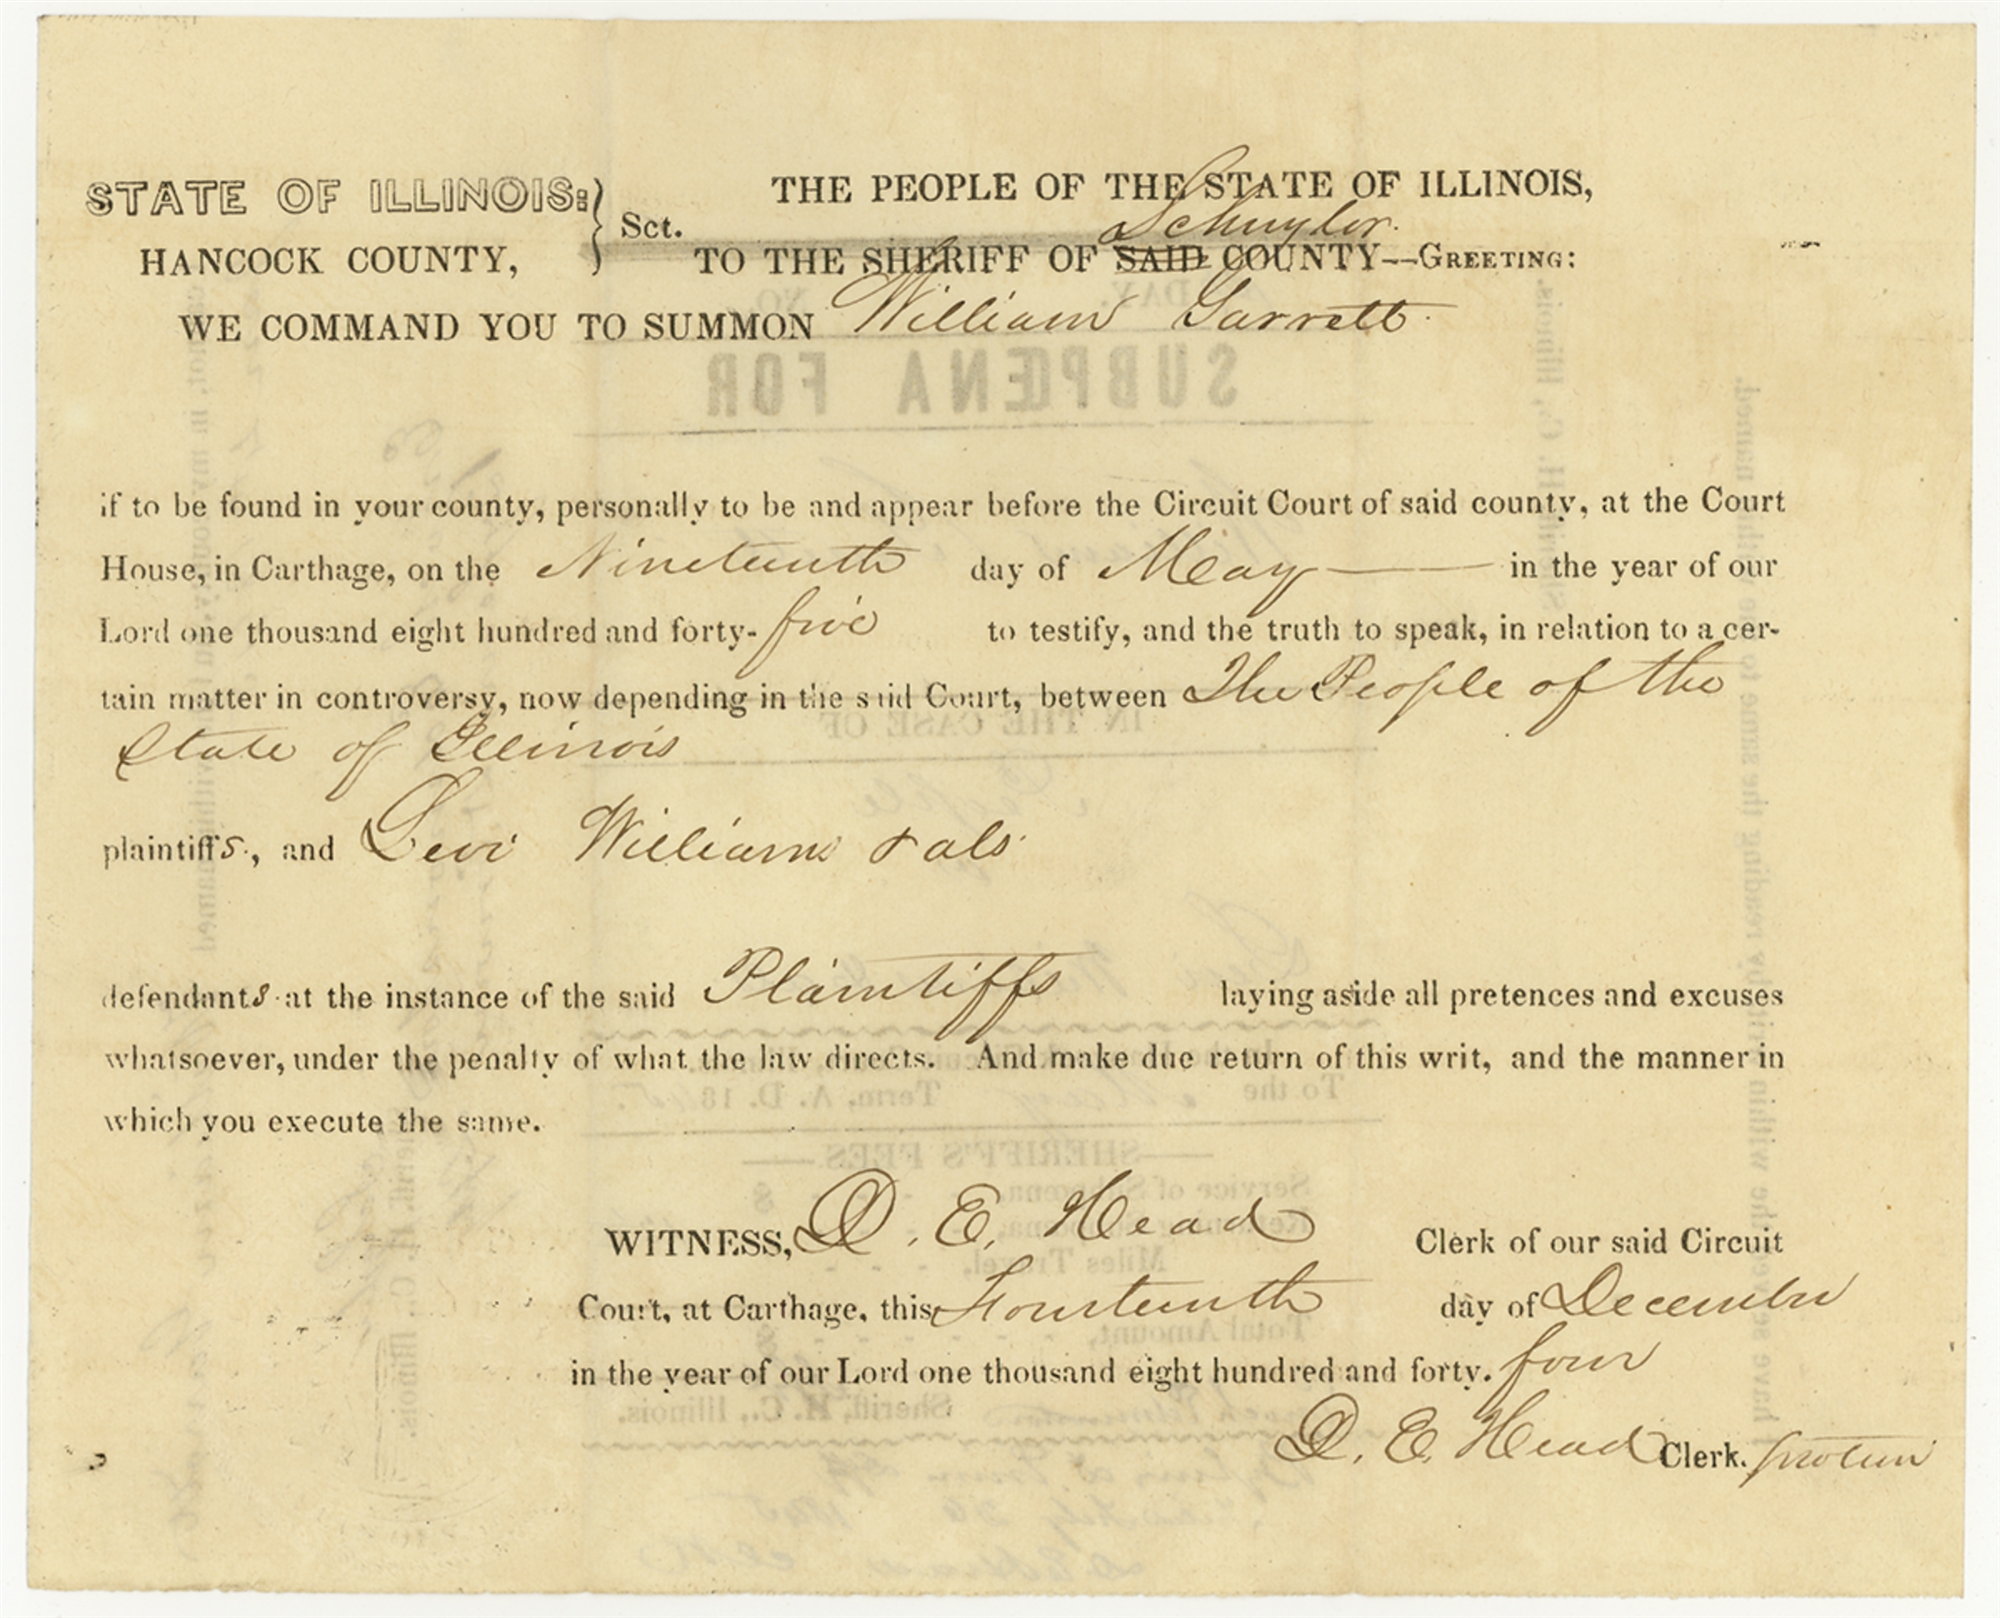 STATE OF ILLINOIS: } Sct. THE PEOPLE OF THE STATE OF ILLINOIS,
HANCOCK COUNTY, TO THE SHERIFF OF SAID Schuyler COUNTY—GREETING:
WE COMMAND YOU TO SUMMON William Garrett
SUBPŒNA FOR
if to be found in your county, personally to be and appear before the Circuit Court of said county, at the Court
House, in Carthage, on the Nineteenth day of May — in the year of our
Lord one thousand eight hundred and forty-five to testify, and the truth to speak, in relation to a cer-
tain matter in controversy, now depending in the said Court, between The People of the
IN THE CASE OF
State of Illinois
plaintiffs, and Levi Williams & als.
defendants at the instance of the said Plaintiffs laying aside all pretences and excuses
whatsoever, under the penalty of what the law directs. And make due return of this writ, and the manner in
To the May Term, A. D. 1845.
which you execute the same.
SHERIFF'S FEES
Service of
WITNESS, D. E. Head Clerk of our said Circuit
Miles Travel,
Court, at Carthage, this Fourteenth day of December
Total Amount,
in the year of our Lord one thousand eight hundred and forty. four
Sheriff, H. C., Illinois.
D. E. Head Clerk. protem